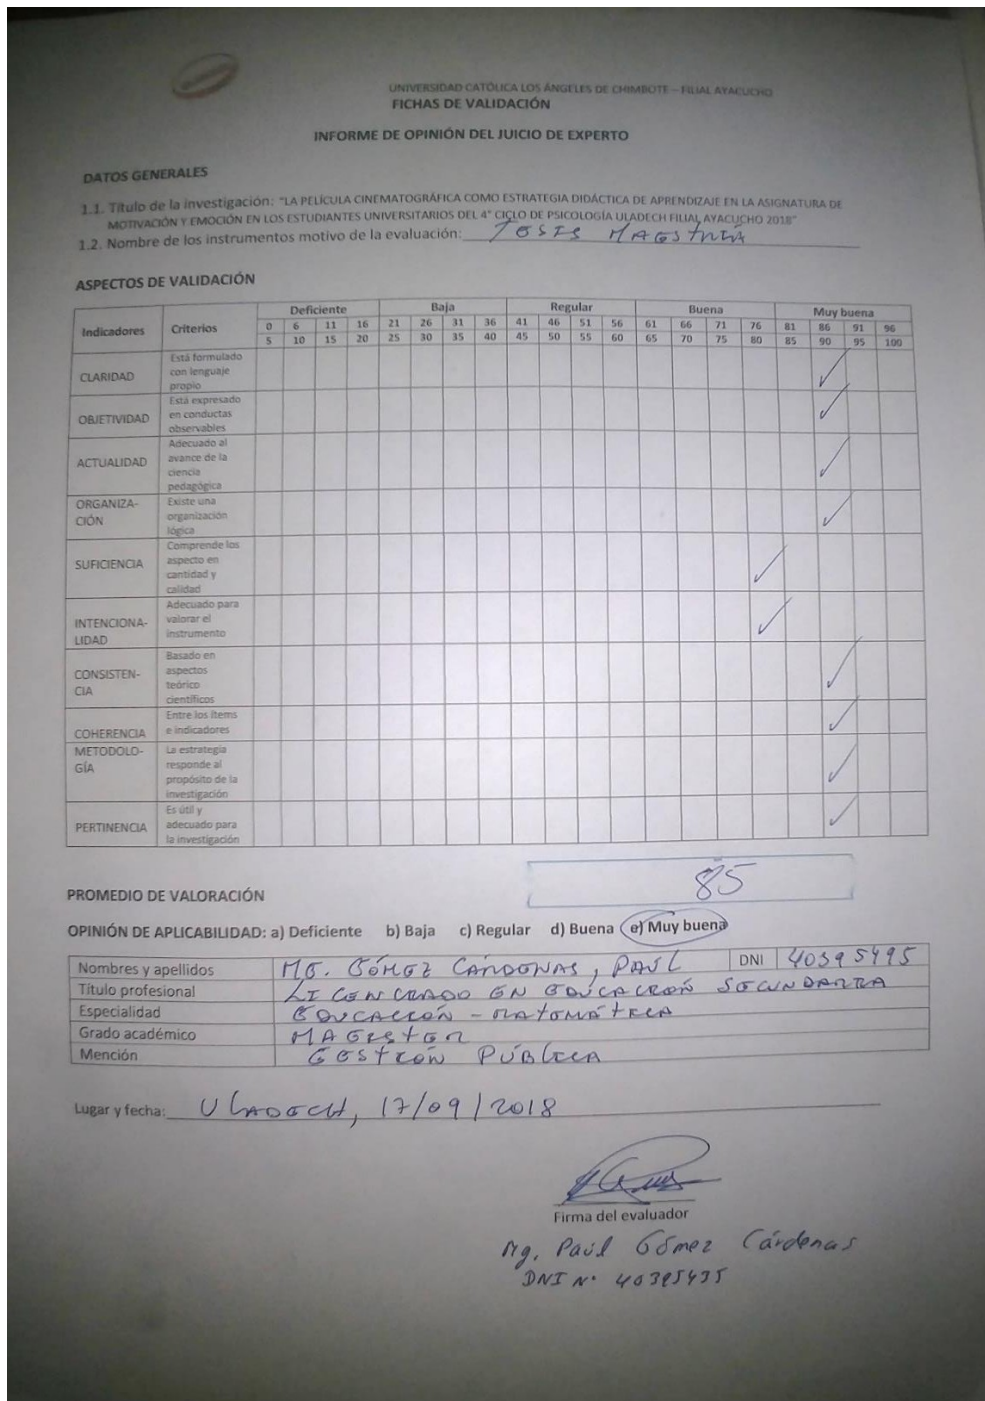 UNIVERSIDAD CATÓLICA LOS ÁNGELES DE CHIMBOTE – FILIAL AYACUCHO
FICHAS DE VALIDACIÓN
INFORME DE OPINIÓN DEL JUICIO DE EXPERTO
DATOS GENERALES
1.1. Título de la investigación: "LA PELÍCULA CINEMATOGRÁFICA COMO ESTRATEGIA DIDÁCTICA DE APRENDIZAJE EN LA ASIGNATURA DE
MOTIVACIÓN Y EMOCIÓN EN LOS ESTUDIANTES UNIVERSITARIOS DEL 4° CICLO DE PSICOLOGÍA ULADECH FILIAL AYACUCHO 2018"
1.2. Nombre de los instrumentos motivo de la evaluación: TESIS MAGSTRÍA
ASPECTOS DE VALIDACIÓN
Indicadores Criterios Deficiente Baja Regular Buena Muy buena
0 6 11 16 21 26 31 36 41 46 51 56 61 66 71 76 81 86 91 96
5 10 15 20 25 30 35 40 45 50 55 60 65 70 75 80 85 90 95 100
CLARIDAD
Está formulado
con lenguaje
propio
OBJETIVIDAD
Está expresado
en conductas
observables
ACTUALIDAD
Adecuado al
avance de la
ciencia
pedagógica
ORGANIZA-
CIÓN
Existe una
organización
lógica
SUFICIENCIA
Comprende los
aspecto en
cantidad y
calidad
INTENCIONA-
LIDAD
Adecuado para
valorar el
instrumento
CONSISTEN-
CIA
Basado en
aspectos
teórico
científicos
COHERENCIA
Entre los ítems
e indicadores
METODOLO-
GÍA
La estrategia
responde al
propósito de la
investigación
PERTINENCIA
Es útil y
adecuado para
la investigación
PROMEDIO DE VALORACIÓN 85
OPINIÓN DE APLICABILIDAD: a) Deficiente b) Baja c) Regular d) Buena e) Muy buena
Nombres y apellidos MG. GÓMEZ CÁRDENAS, PAÚL DNI
Título profesional LICENCIADO EN EDUCACIÓN SECUNDARIA
Especialidad EDUCACIÓN - MATEMÁTICA
Grado académico MAGISTER
Mención GESTIÓN PÚBLICA
Lugar y fecha: ULADECH, 17/09/2018
Firma del evaluador
Mg. Paúl Gómez Cárdenas
DNI N°